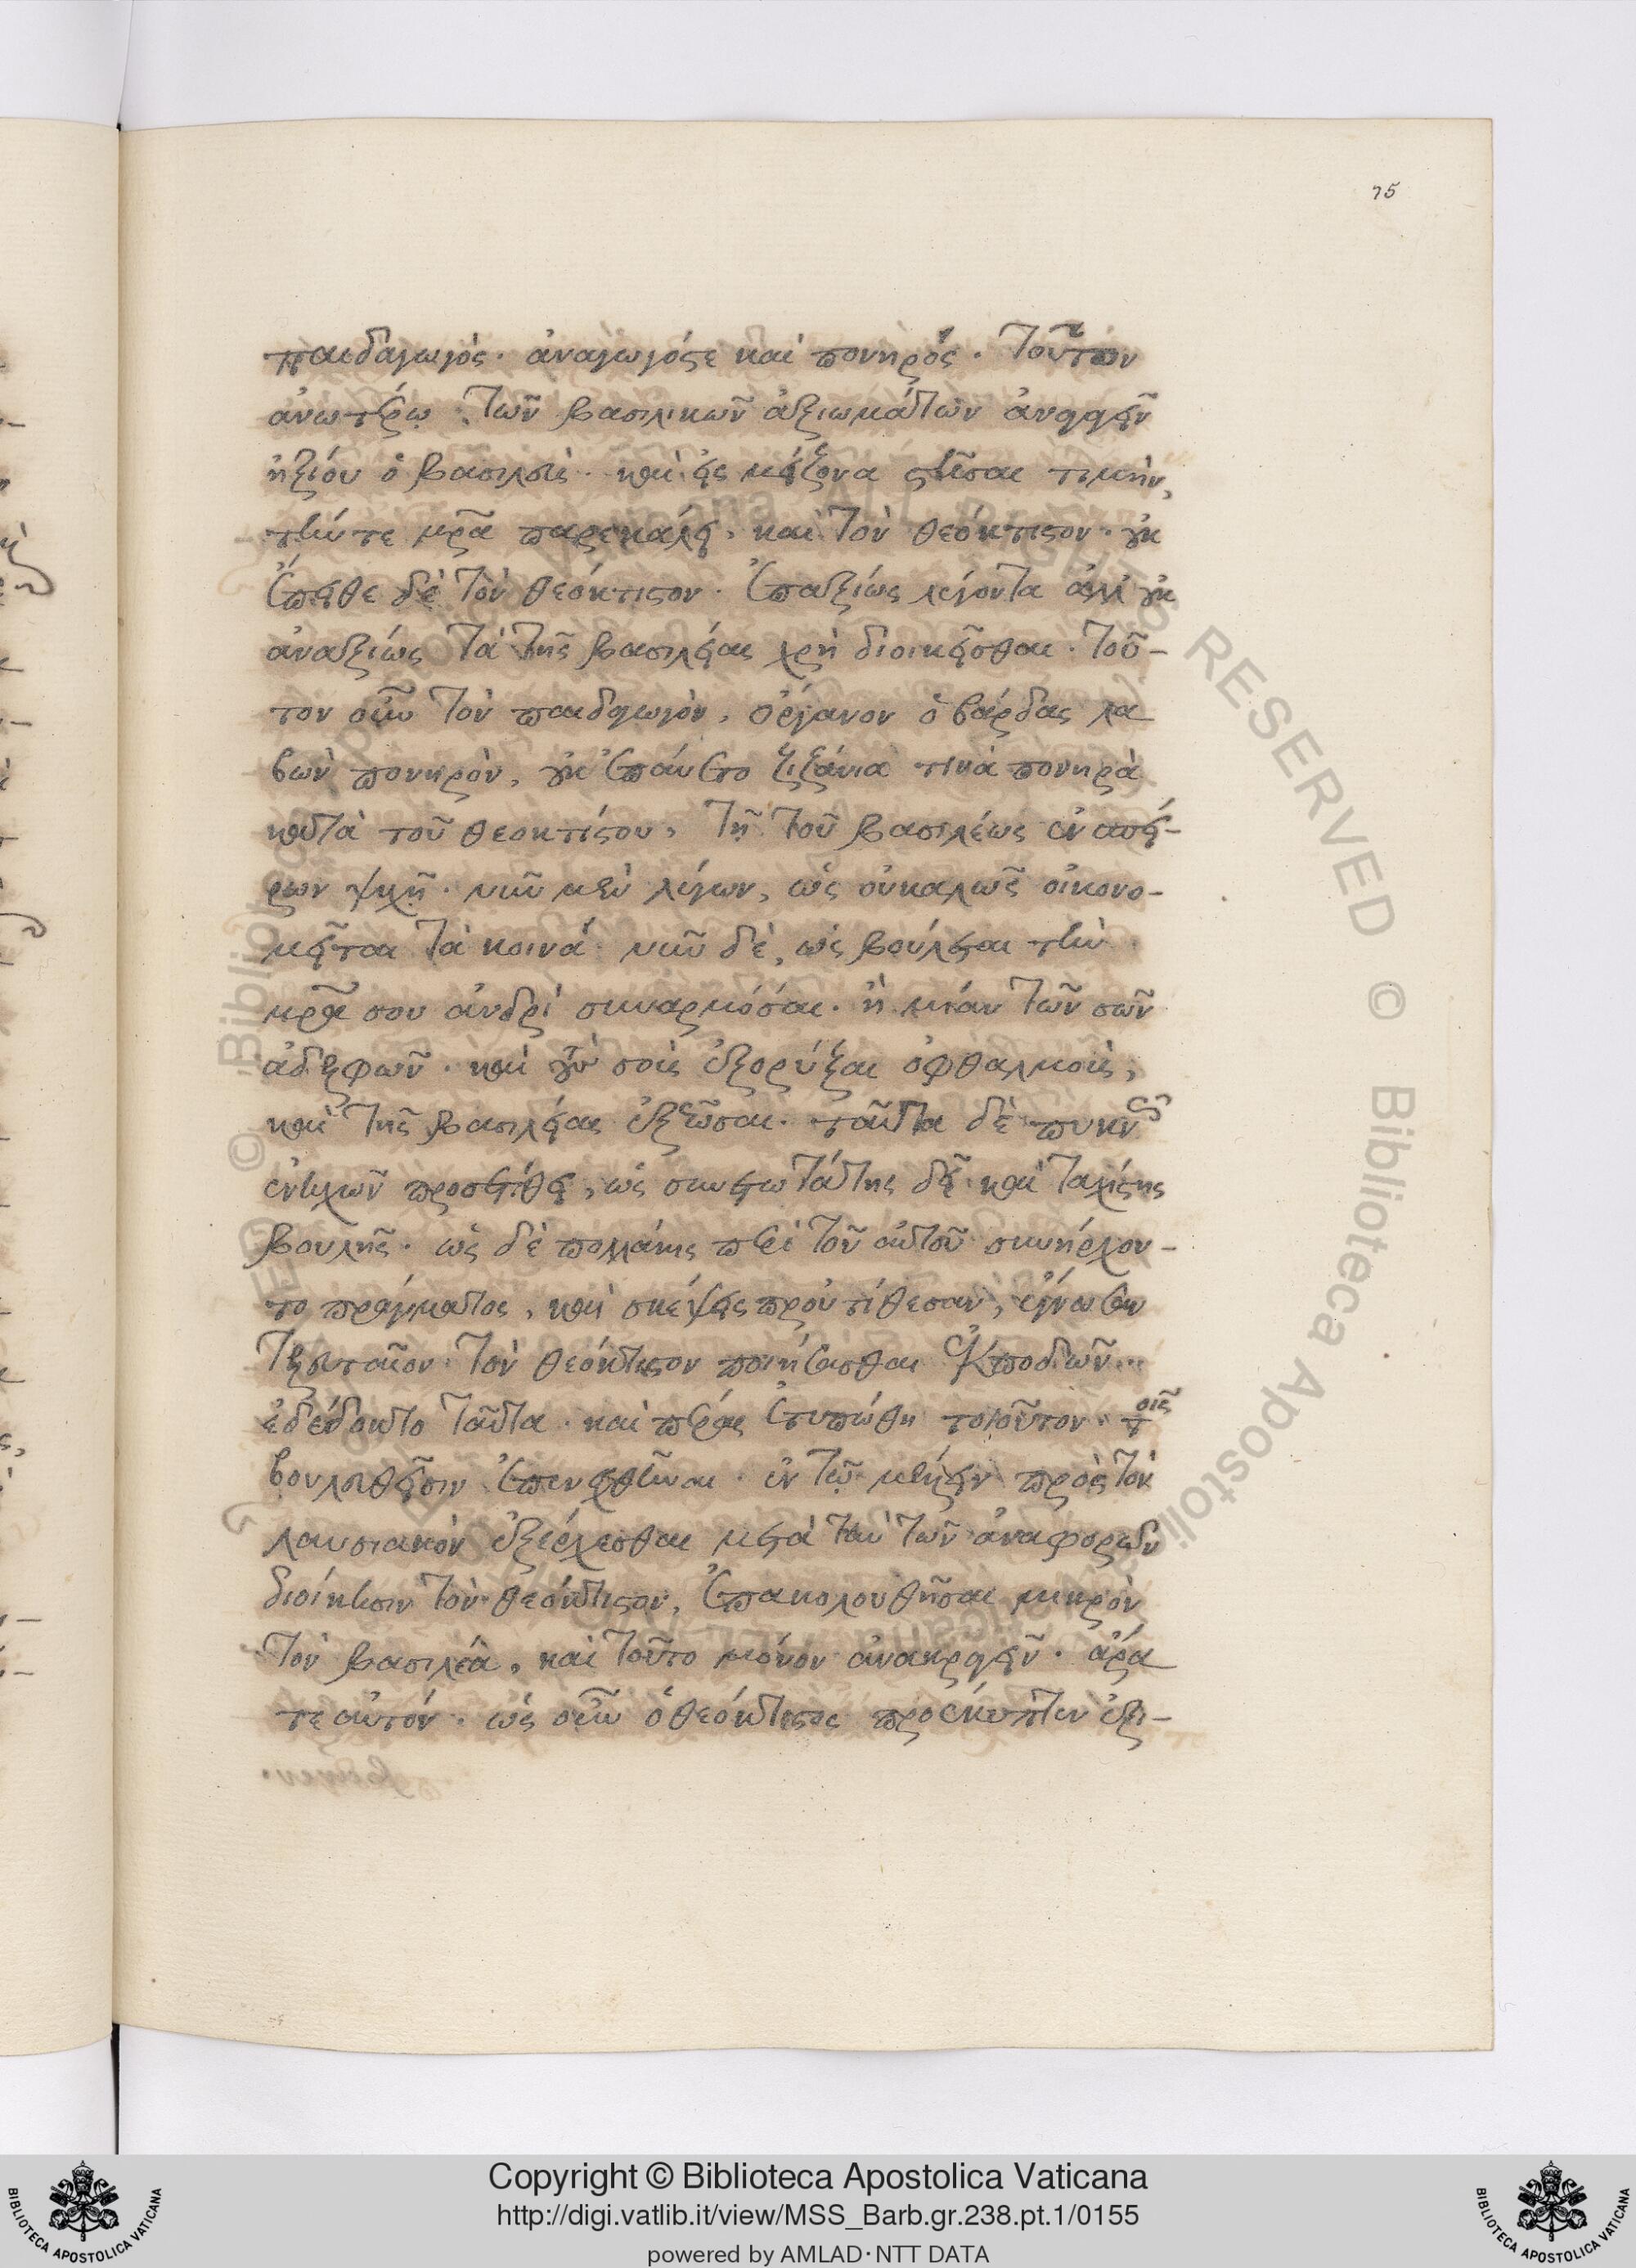 75
παιδαγωγὸς. ἀναγωγόςτε καὶ πονηρός. Τοῦτον
ἀνωτέρω. τῶν βασιλικῶν ἀξιωμάτων ἀναγαγεῖν
ἠξίου ὁ βασιλεὺς. καὶ εἰς μείζονα στῆσαι τιμὴν,
τήν τε μρ͂α παρεκάλει. καὶ τὸν θεόκτιστον. οὐκ
ἔπειθε δὲ τὸν θεόκτιστον. ἐπαξίως λέγοντα ἀλλ' οὐκ
ἀναξίως τὰ τῆς βασιλείας χρὴ διοικεῖσθαι. τοῦ-
τον οὖν τὸν παιδαγωγὸν, ὄργανον ὁ βάρδας λα
βὼν πονηρὸν, οὐκ ἐπαύετο ζιζάνια τινὰ πονηρὰ
κατὰ τοῦ θεοκτίστου, τῇ τοῦ βασιλέως ἐνσπεί-
ρων ψυχῇ. νῦν μὲν λέγων, ὡς οὐκαλῶς οἰκονο-
μεῖται τὰ κοινά. νῦν δὲ, ὡς βούλεται τὴν
μρ͂α σου ἀνδρὶ συναρμόσαι. ἢ μίαν τῶν σῶν
ἀδελφῶν. καὶ τοὺς σοὺς ἐξορύξαι ὀφθαλμοὺς,
καὶ τῆς βασιλείας ἐξεῶσαι. ταῦτα δὲ πυκνῶς
ἐντυχὼν προσετίθει, ὡς συνετωτάτης δεῖ καὶ ταχίστης
βουλῆς. ὡς δὲ πολλάκις περὶ τοῦ αὐτοῦ συνήρχον-
το πράγματος, καὶ σκέψεις προὐτίθεσαν, ἔγνωσαν
τελευταῖον τὸν θεόκτιστον ποιήσασθαι ἐκποδών...
ἐδέδοκτο ταῦτα. καὶ πέρας ἐτυπώθη τοιοῦτον. τοῖς
βουλευθεῖσιν ἐπενεχθῆναι. ἐν τῷ μέλλειν πρὸς τὸν
λαυσιακὸν ἐξέρχεσθαι μετὰ τὴν τῶν ἀναφορῶν
διοίκησιν τὸν θεόκτιστον, ἐπακολουθῆσαι μικρὸν
τὸν βασιλέα, καὶ τοῦτο μόνον ἀνακραγεῖν. ἄρα
τε αὐτόν. ὡς οὖν ὁ θεόκτιστος προέκυπτεν ἐξι-
Copyright © Biblioteca Apostolica Vaticana
http://digi.vatlib.it/view/MSS_Barb.gr.238.pt.1/0155
powered by AMLAD·NTT DATA